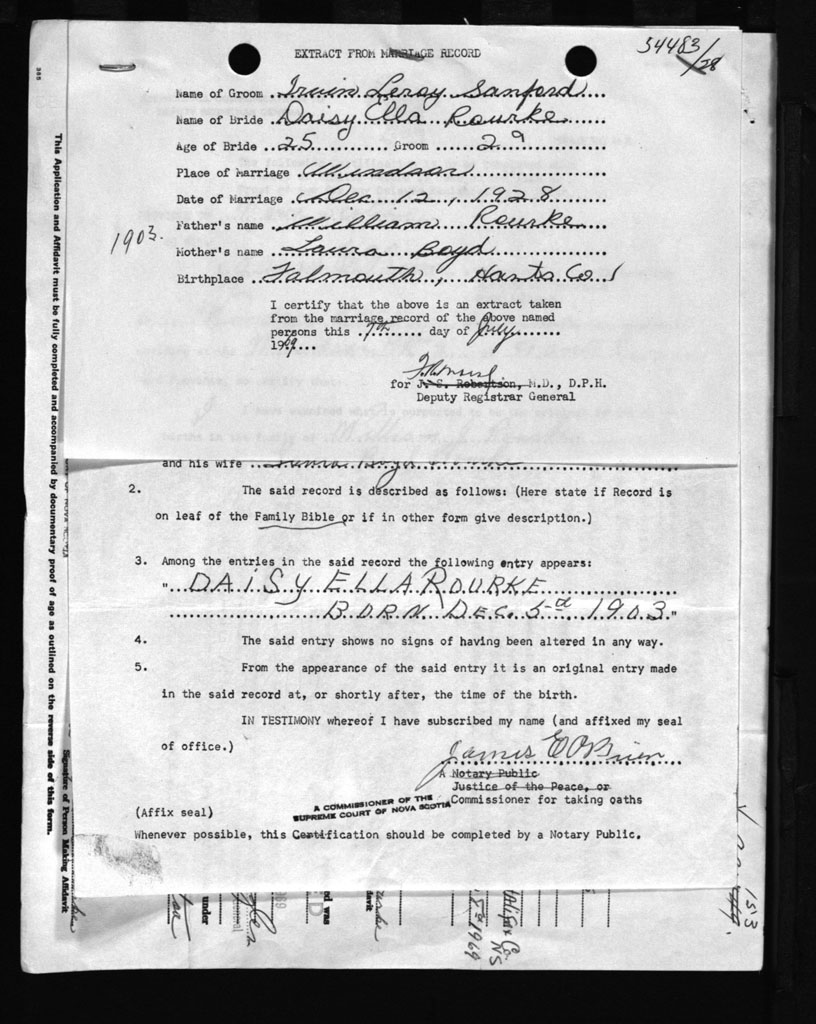 54483/28
EXTRACT FROM MARRIAGE RECORD
Name of Groom ..Irvin Leroy Sanford....
Name of Bride ..Daisy Ella Rourke...
Age of Bride ..25.......... Groom ......29..........
Place of Marriage .Windsor..................
Date of Marriage ..Dec 12, 1928
Father's name ..William Rourke...
1903.
Mother's name ..Laura Boyd...........
Birthplace ..Falmouth, Hants Co
I certify that the above is an extract taken
from the marriage record of the above named
persons this .7th....... day of July.......
1969...
for J. S. Robertson, M.D., D.P.H.
Deputy Registrar General
and his wife ..
2. The said record is described as follows: (Here state if Record is
on leaf of the Family Bible or if in other form give description.)
3. Among the entries in the said record the following entry appears:
"..DAISY ELLA ROURKE
BORN DEC. 5d 1903."
4. The said entry shows no signs of having been altered in any way.
5. From the appearance of the said entry it is an original entry made
in the said record at, or shortly after, the time of the birth.
IN TESTIMONY whereof I have subscribed my name (and affixed my seal
of office.)
James E O'Brien
A Notary Public
Justice of the Peace, or
Commissioner for taking oaths
A COMMISSIONER OF THE
SUPREME COURT OF NOVA SCOTIA
(Affix seal)
Whenever possible, this Certification should be completed by a Notary Public.
This Application and Affidavit must be fully completed and accompanied by documentary proof of age as outlined on the reverse side of this form.
Signature of Person Making Affidavit
385
under
ed was
davit
Halifax Co.
NS
1969
153